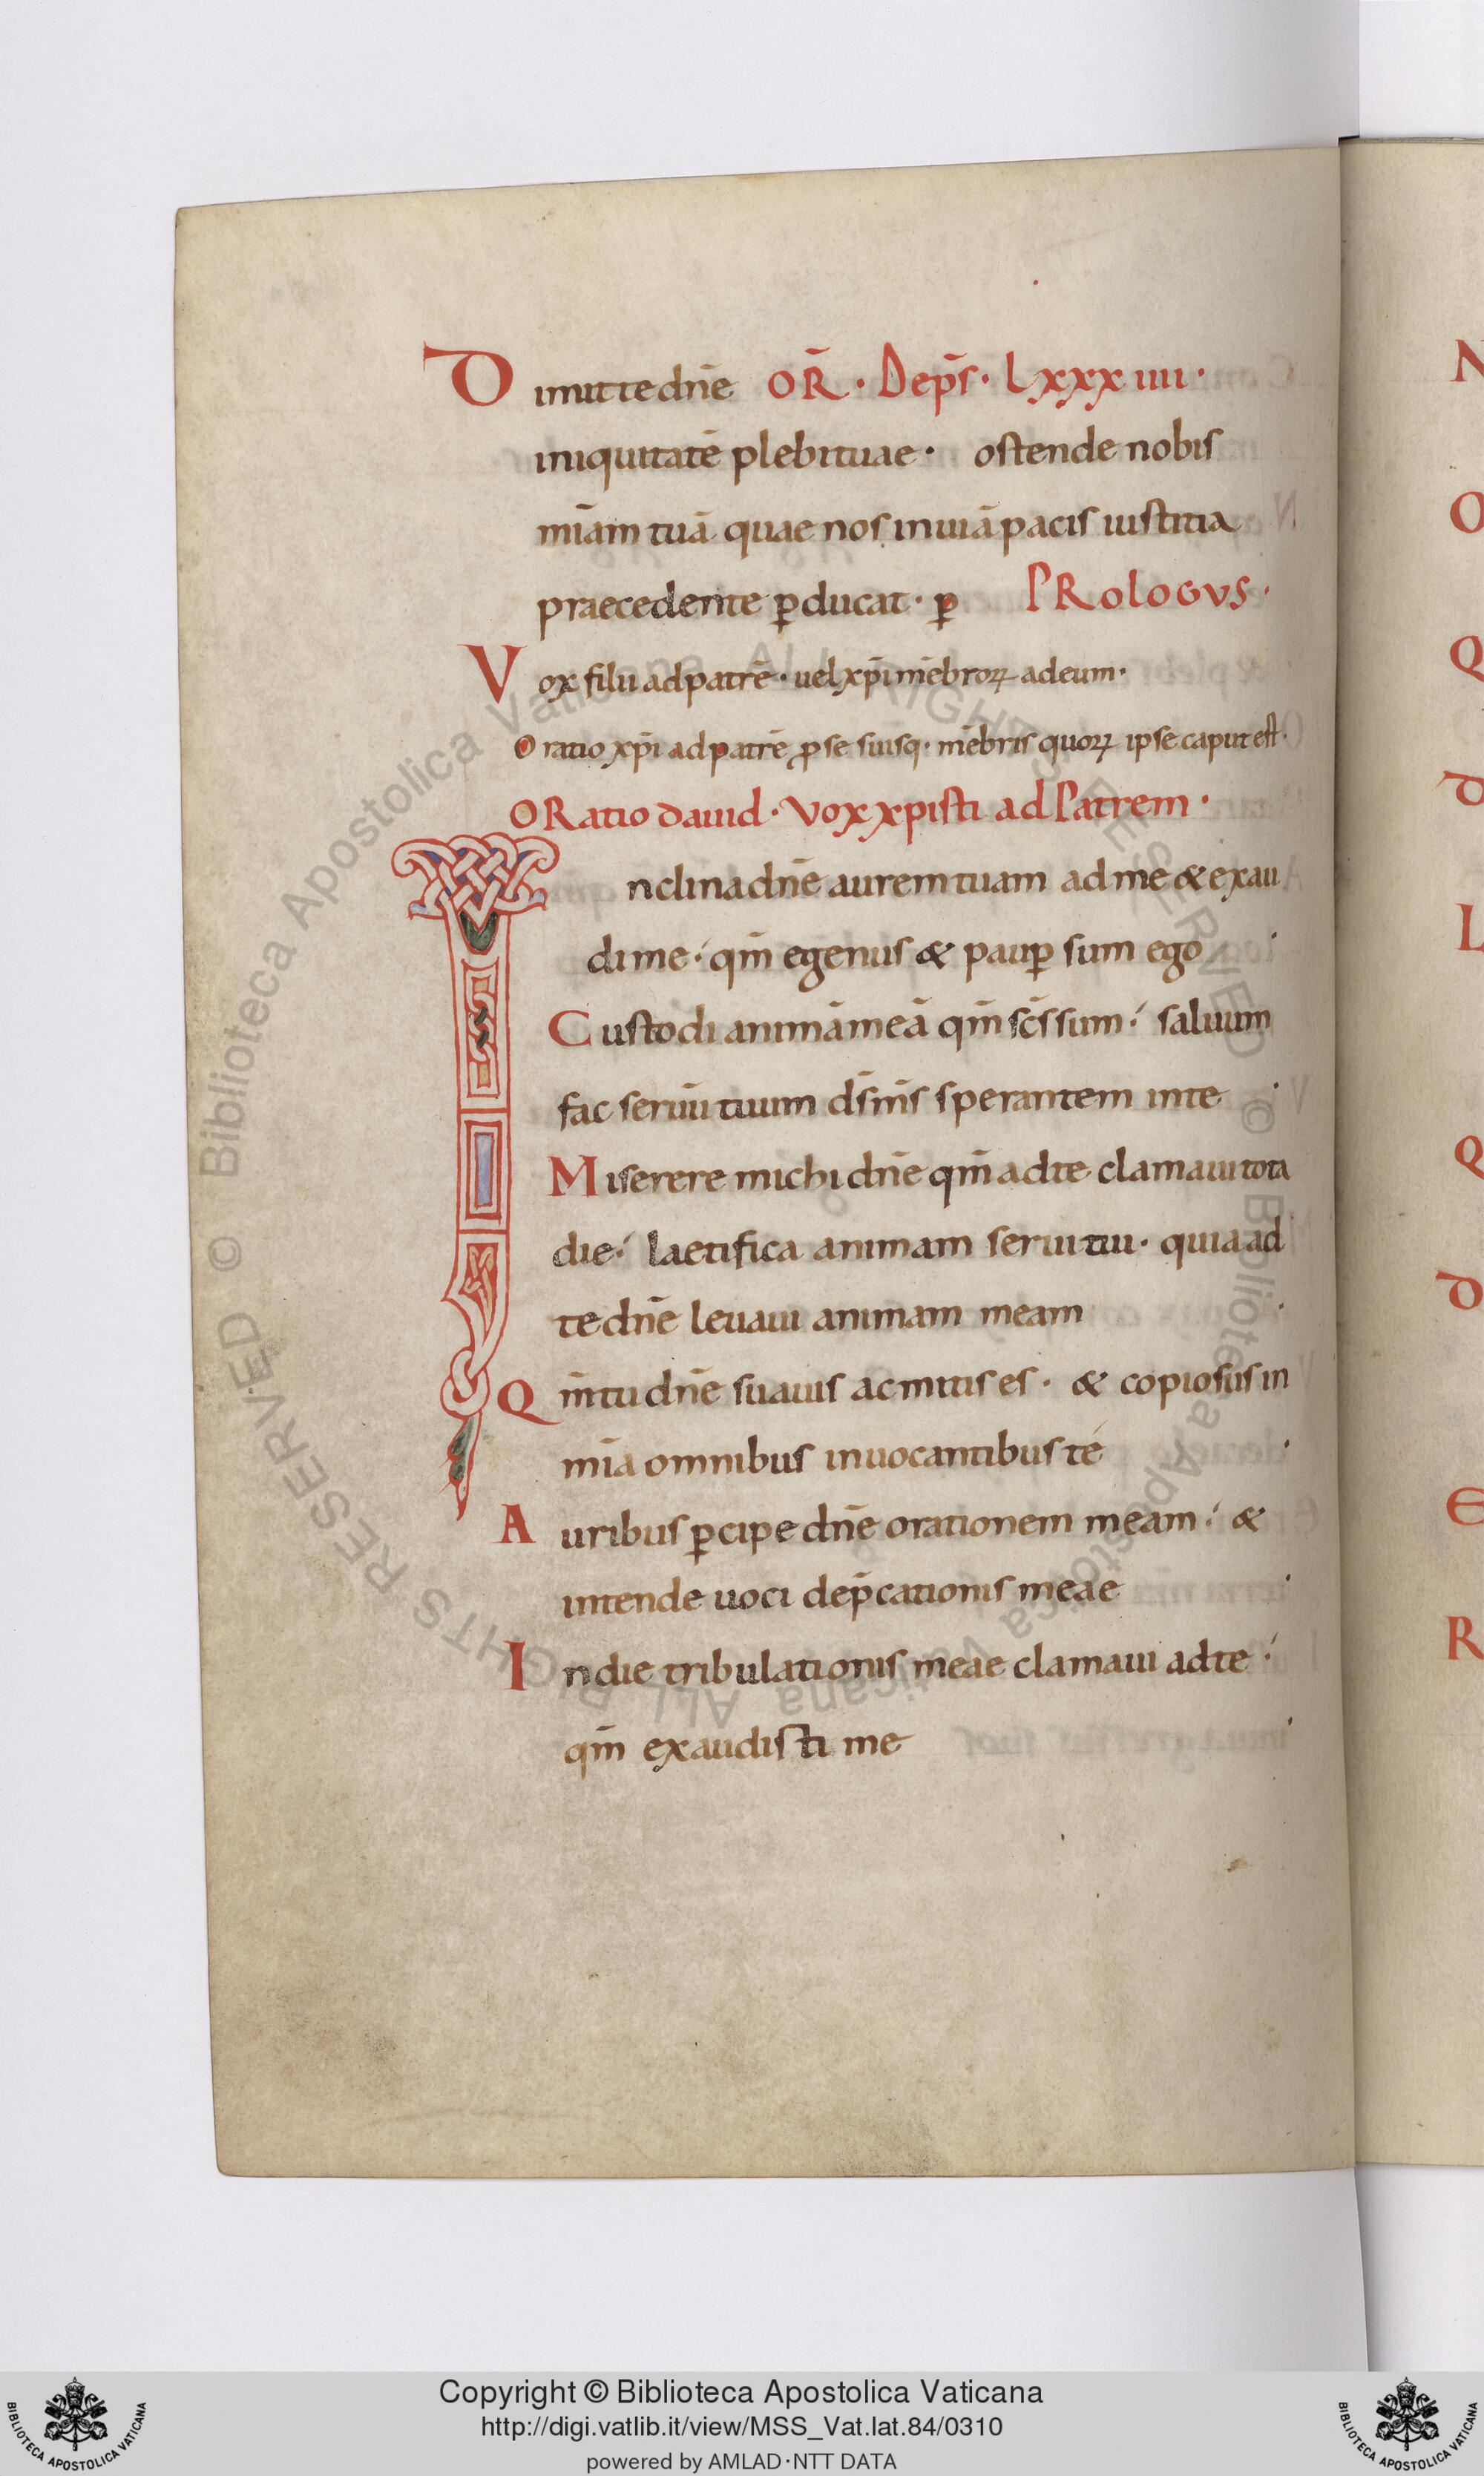 Dimitte dn̄e OR̄ · De ps̄ · Lxxxiiii ·
iniquitatē plebi tuae · ostende nobis
mīam tuā quae nos in uiā pacis iustitia
praecedente ꝑducat · ꝑ PROLOGVS ·
Vox filii ad patrē · uel xp̄i mēbroꝝ ad eum ·
Oratio xp̄i ad patrē ꝓ se suisq · mēbris quoꝝ ipse caput est ·
ORatio dauid · Vox xpisti ad Patrem ·
Inclina dn̄e aurem tuam ad me & exau
di me · qm̄ egenus & pauꝑ sum ego
Custodi animā meā qm̄ sc̄s sum · saluum
fac seruū tuum ds̄ ms̄ sperantem in te
Miserere michi dn̄e qm̄ ad te clamaui tota
die · laetifica animam serui tui · quia ad
te dn̄e leuaui animam meam
Qm̄ tu dn̄e suauis ac mitis es · & copiosus in
mīa omnibus inuocantibus te
Auribus ꝑcipe dn̄e orationem meam · &
intende uoci dep̄cationis meae
In die tribulationis meae clamaui ad te ·
qm̄ exaudisti me
N
O
Q
d
L
Q
d
E
R
© Biblioteca Apostolica Vaticana ALL RIGHTS RESERVED © Biblioteca Apostolica Vaticana ALL RIGHTS RESERVED
Copyright © Biblioteca Apostolica Vaticana
http://digi.vatlib.it/view/MSS_Vat.lat.84/0310
powered by AMLAD·NTT DATA
BIBLIOTECA APOSTOLICA VATICANA
BIBLIOTECA APOSTOLICA VATICANA